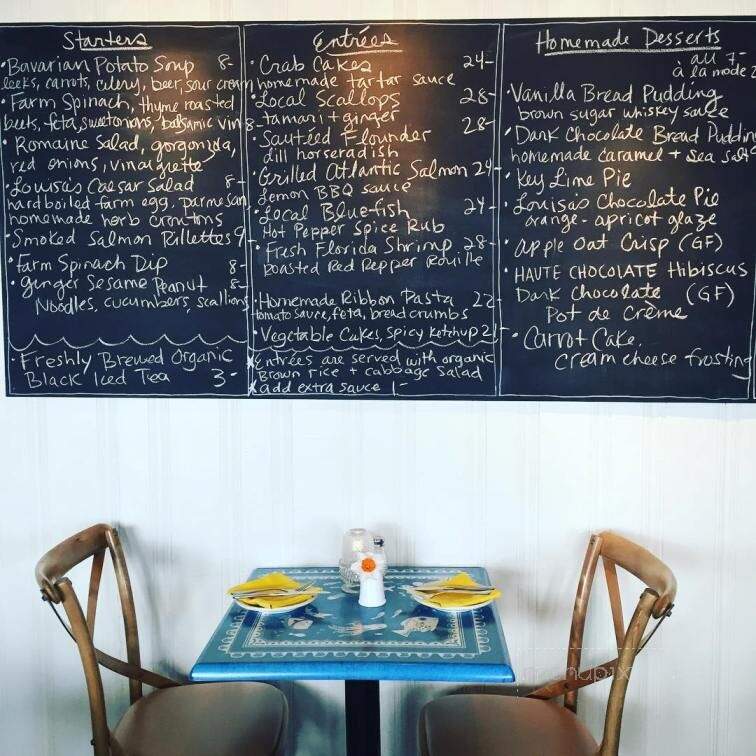 Starters
Bavarian Potato Soup 8-
leeks, carrots, celery, beer, sour cream
Farm Spinach, thyme roasted
beets, feta, sweet onions, balsamic vin 8-
Romaine Salad, gorgonzola,
red onions, vinaigrette
Louisa's Caesar Salad 8-
hardboiled farm egg, parmesan
homemade herb croutons
Smoked Salmon Rillettes 9
Farm Spinach Dip 8-
Ginger Sesame Peanut 8-
Noodles, cucumbers, scallions
Freshly Brewed Organic
Black Iced Tea 3-
Entrées
Crab Cakes 24-
homemade tartar sauce
Local Scallops 28-
tamari + ginger
Sautéed Flounder 28-
dill horseradish
Grilled Atlantic Salmon 24-
Lemon BBQ sauce
Local Bluefish 24-
Hot Pepper Spice Rub
Fresh Florida Shrimp 28-
Roasted Red Pepper Rouille
Homemade Ribbon Pasta 22-
tomato sauce, feta, breadcrumbs
Vegetable Cakes, spicy ketchup 21-
Entrées are served with organic
Brown rice + cabbage salad
add extra sauce 1-
Homemade Desserts
all 7-
à la mode 2
Vanilla Bread Pudding
brown sugar whiskey sauce
Dark Chocolate Bread Puddin
homemade caramel + sea salt
Key Lime Pie
Louisa's Chocolate Pie
orange-apricot glaze
Apple Oat Crisp (GF)
HAUTE CHOCOLATE Hibiscus
Dark Chocolate (GF)
Pot de Crème
Carrot Cake,
cream cheese frosting
menupix